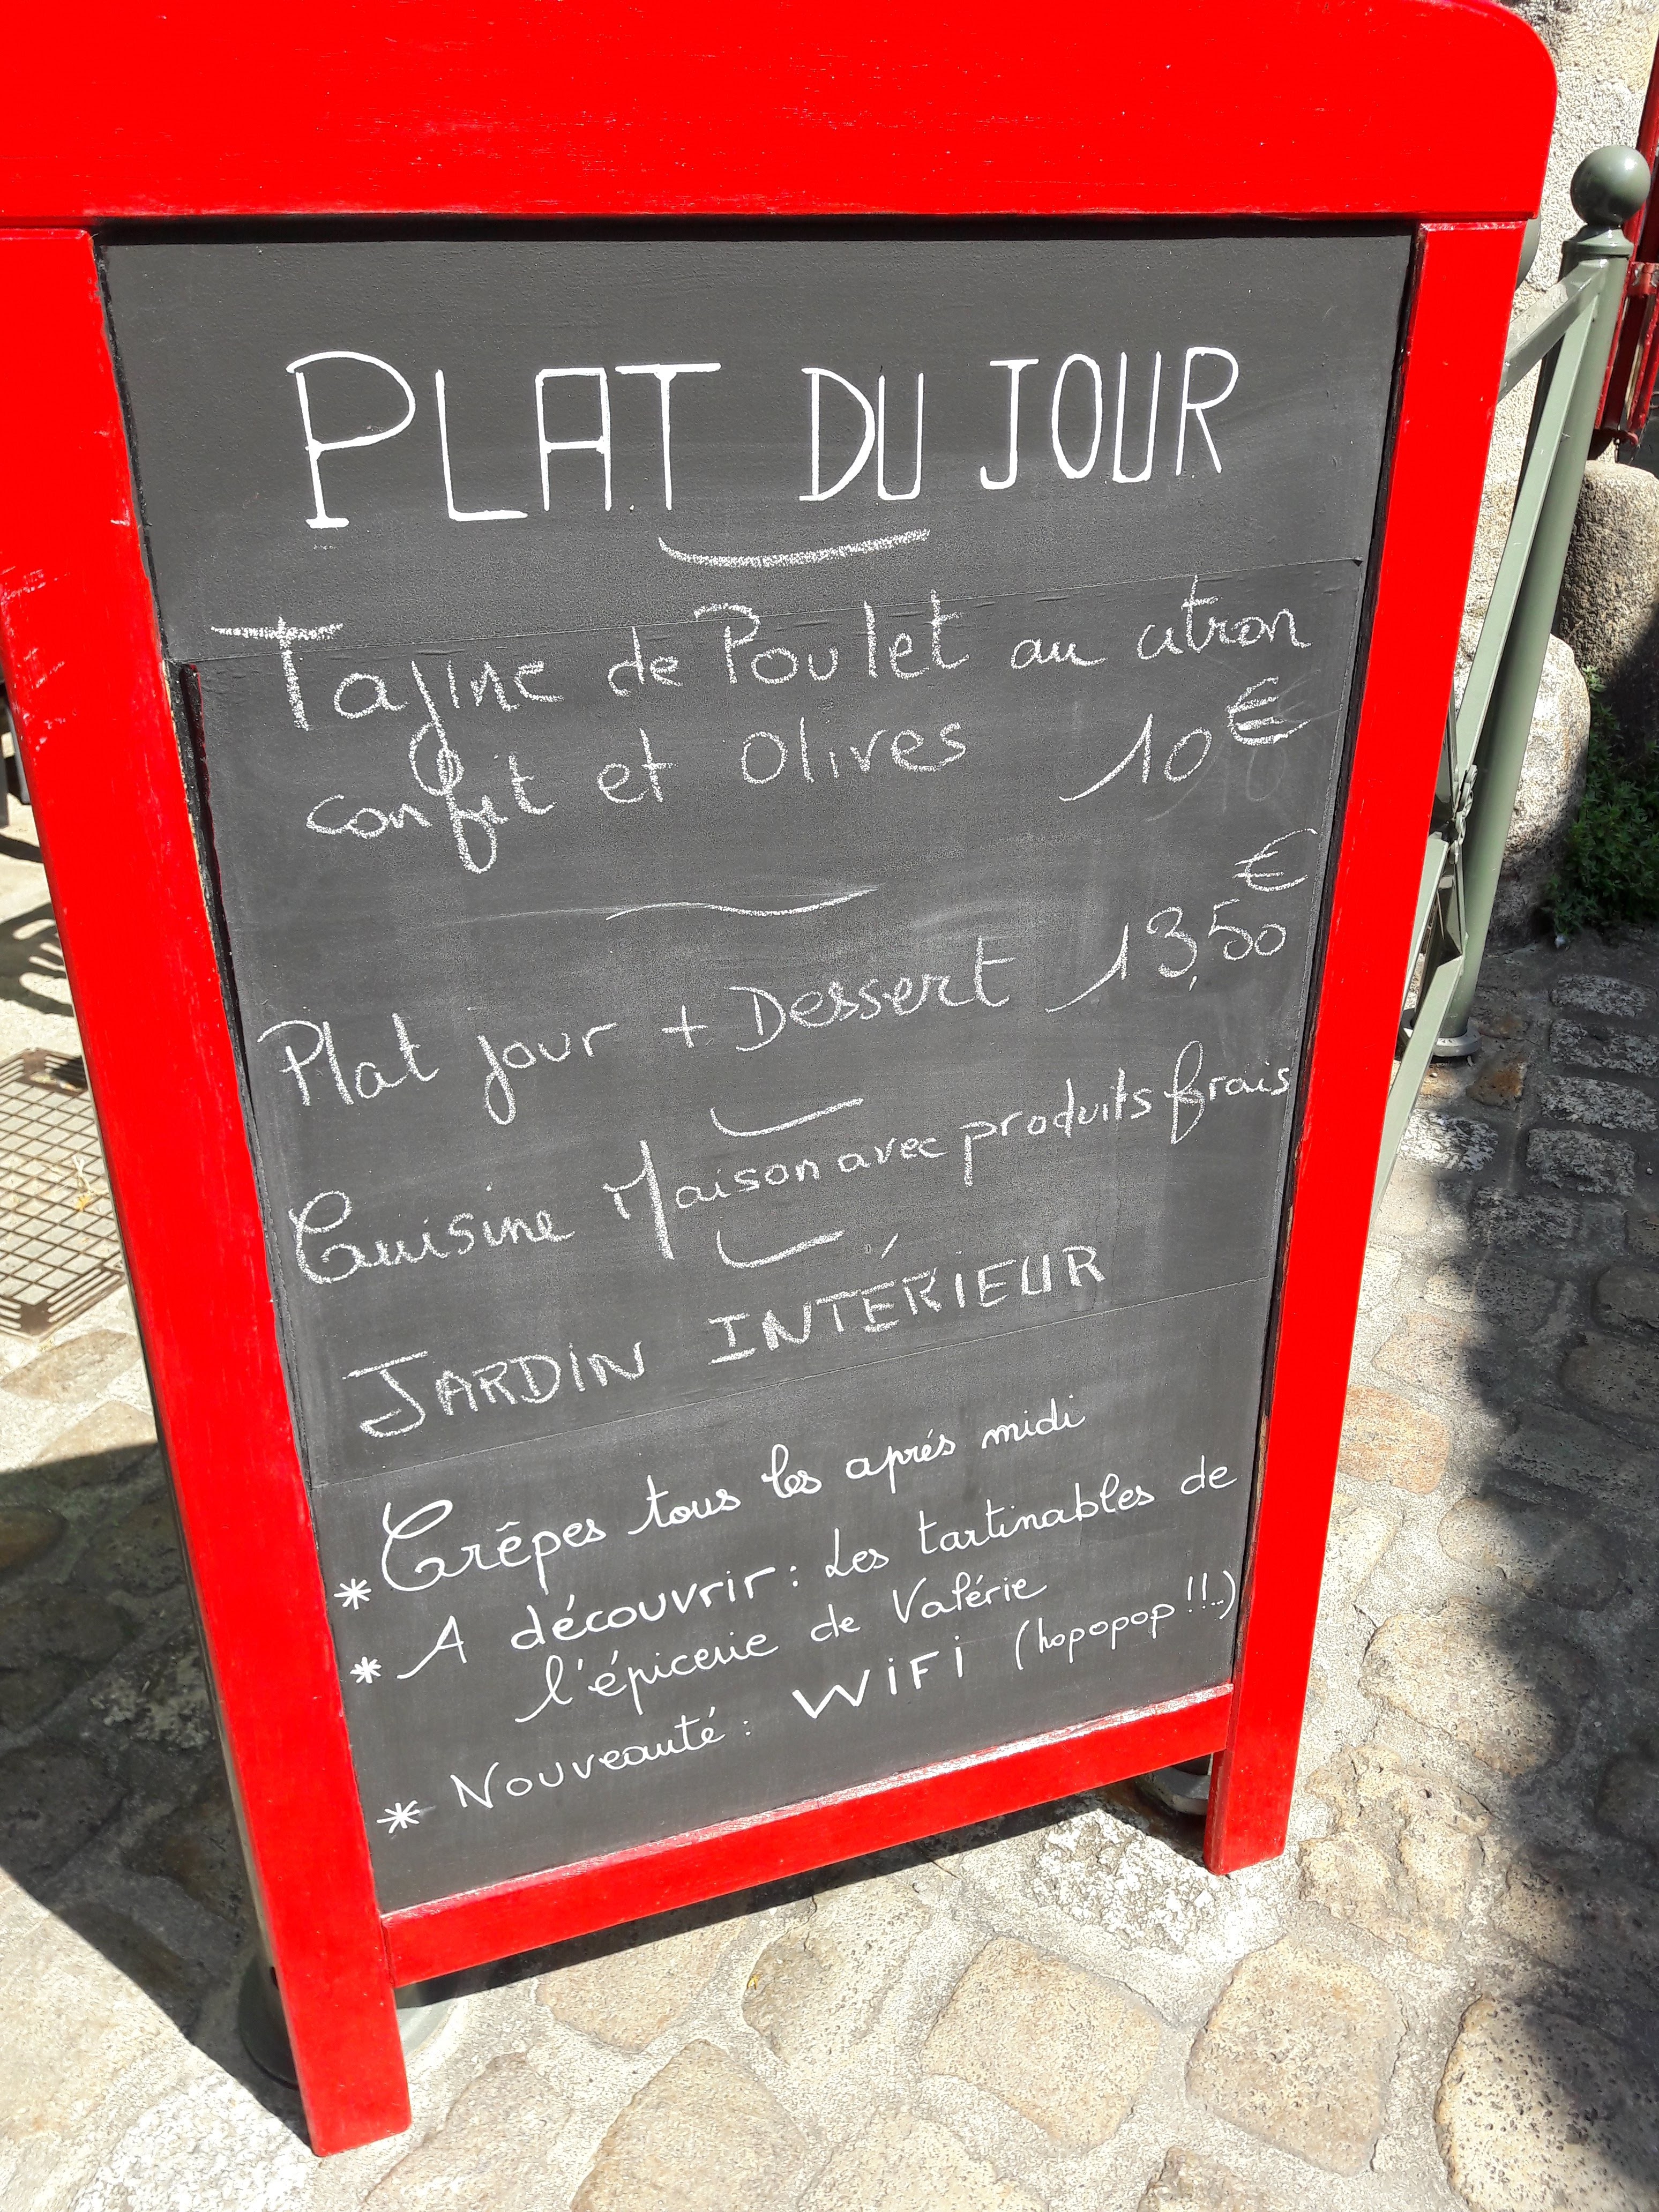 PLAT DU JOUR
Tajine de Poulet au citron
confit et olives 10 €
Plat jour + Dessert 13,50 €
Cuisine Maison avec produits frais
JARDIN INTÉRIEUR
* Crêpes tous les aprés midi
* A découvrir : Les tartinables de
l'épicerie de Valérie
* Nouveauté : WiFi (hopopop !!..)